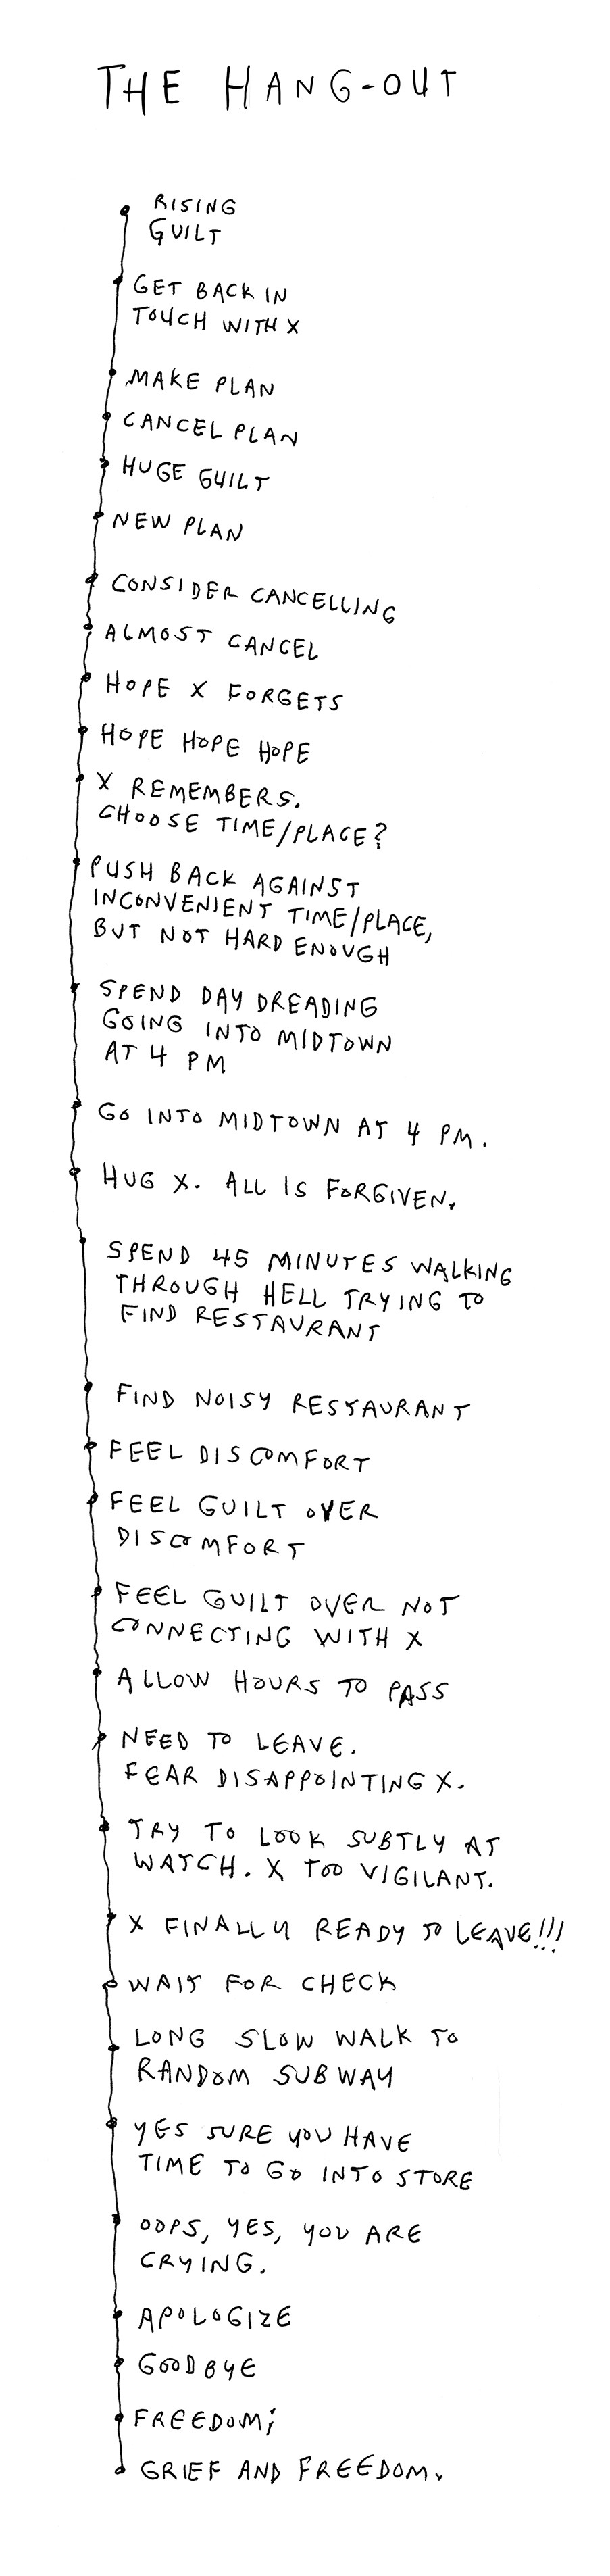 THE HANG-OUT
RISING
GUILT
GET BACK IN
TOUCH WITH X
MAKE PLAN
CANCEL PLAN
HUGE GUILT
NEW PLAN
CONSIDER CANCELLING
ALMOST CANCEL
HOPE X FORGETS
HOPE HOPE HOPE
X REMEMBERS.
CHOOSE TIME/PLACE?
PUSH BACK AGAINST
INCONVENIENT TIME/PLACE,
BUT NOT HARD ENOUGH
SPEND DAY DREADING
GOING INTO MIDTOWN
AT 4 PM
GO INTO MIDTOWN AT 4 PM.
HUG X. ALL IS FORGIVEN.
SPEND 45 MINUTES WALKING
THROUGH HELL TRYING TO
FIND RESTAURANT
FIND NOISY RESTAURANT
FEEL DISCOMFORT
FEEL GUILT OVER
DISCOMFORT
FEEL GUILT OVER NOT
CONNECTING WITH X
ALLOW HOURS TO PASS
NEED TO LEAVE.
FEAR DISAPPOINTING X.
TRY TO LOOK SUBTLY AT
WATCH. X TOO VIGILANT.
X FINALLY READY TO LEAVE!!!
WAIT FOR CHECK
LONG SLOW WALK TO
RANDOM SUBWAY
YES SURE YOU HAVE
TIME TO GO INTO STORE
OOPS, YES, YOU ARE
CRYING.
APOLOGIZE
GOODBYE
FREEDOM;
GRIEF AND FREEDOM.